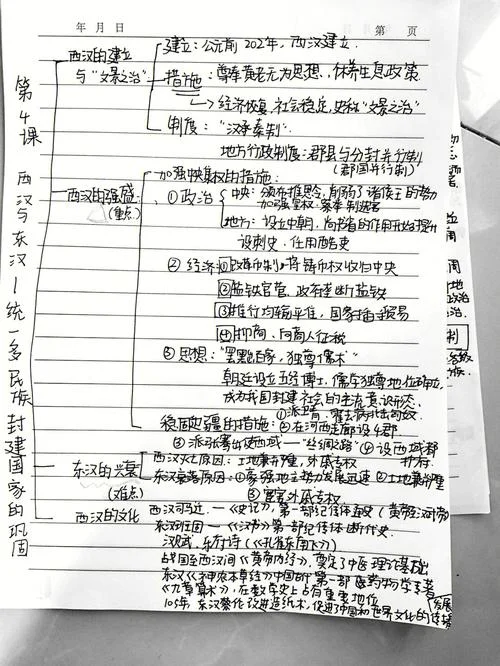 年 月 日
第 页
第4课 西汉与东汉—统一多民族封建国家的巩固
西汉的建立与"文景之治"
建立:公元前202年,西汉建立.
措施:尊奉黄老无为思想、休养生息政策
→经济恢复,社会稳定,史称"文景之治"
制度:"汉承秦制".
地方行政制度:郡县与分封并行制
(郡国并行制)
西汉的强盛
(重点)
加强中央集权的措施:
①政治
中央:颁布推恩令,削弱了诸侯王的势力
加强皇权:察举制选官
地方:设立中朝,尚书省的作用开始提升
设刺史、任用酷吏
②经济
①改革币制,将铸币权收归中央
②盐铁官营、政府垄断盐铁
③推行均输平准,国家插手贸易
④抑商、向商人征税
③思想:"罢黜百家,独尊儒术"
朝廷设立五经博士,儒学独尊地位确立,
成为我国封建社会的主流意识形态
稳固边疆的措施:
①派卫青、霍去病抗击匈奴
②在河西走廊设4郡
③派张骞出使西域—"丝绸之路"
④设西域都护府.
东汉的兴衰
(难点)
西汉灭亡原因:土地兼并严重,外戚专权
东汉衰落原因:①豪强地主势力发展迅速 ②土地兼并严重
③宦官外戚专权
西汉的文化
西汉司马迁—《史记》,第一部纪传体通史(黄帝至汉武帝)
东汉班固—《汉书》第一部纪传体断代史.
汉赋、乐府诗(《孔雀东南飞》)
战国至西汉间《黄帝内经》,奠定了中医理论基础
东汉《神农本草经》中国古代第一部医药物学专著
《九章算术》,在数学史上占有重要地位
105年,东汉蔡伦改进造纸术,促进了中国和世界文化的传播
发展